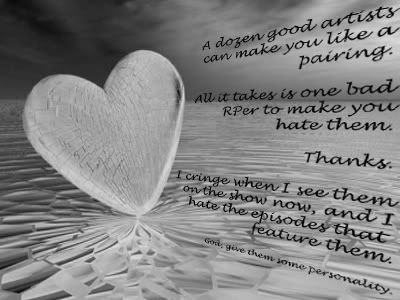 A dozen good artists
can make you like a
pairing.
All it takes is one bad
RPer to make you
hate them.
Thanks.
I cringe when I see them
on the show now, and I
hate the episodes that
feature them.
God, give them some personality.